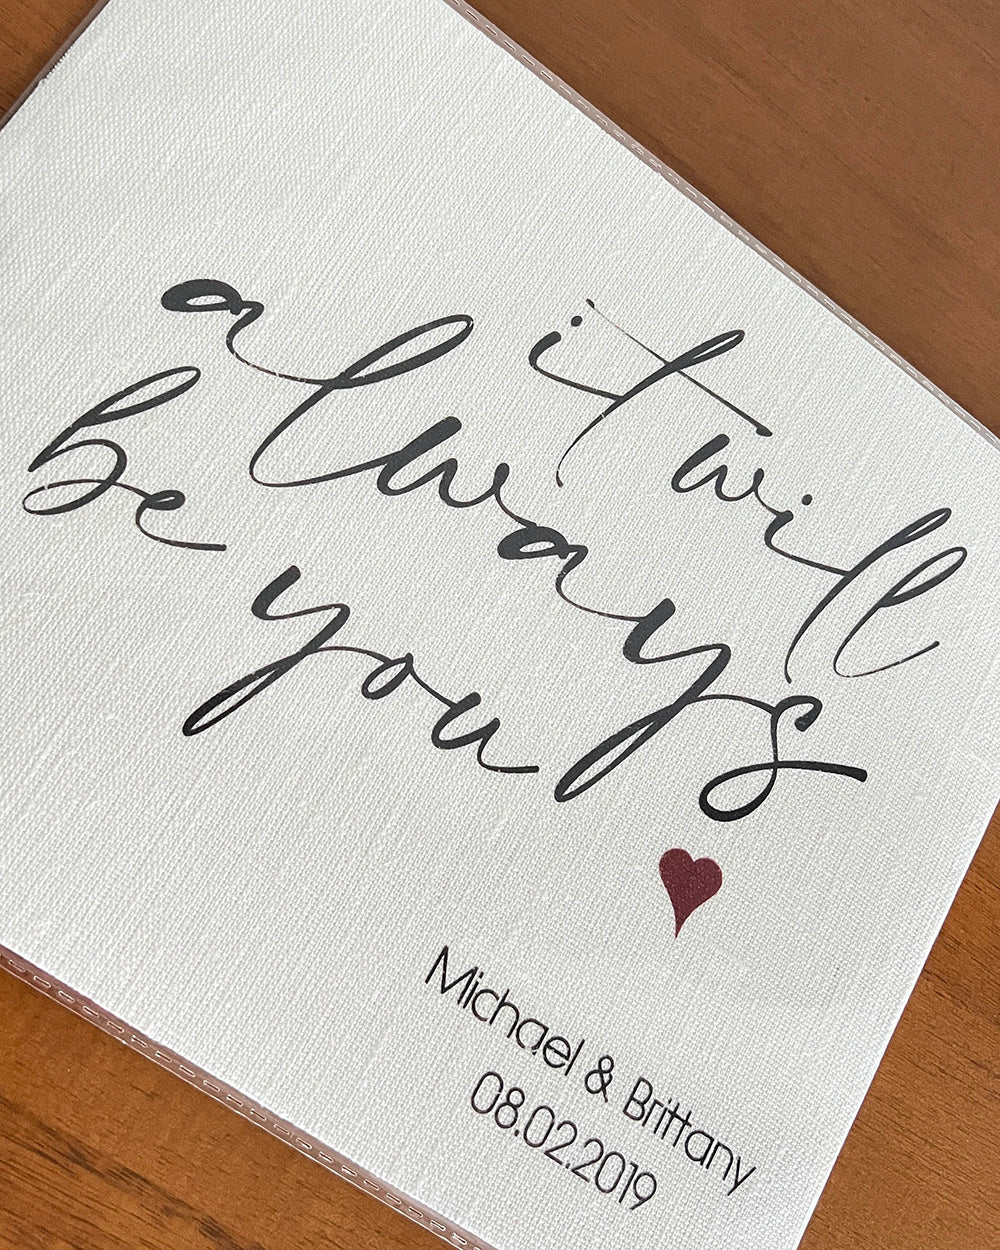 it will
always
be you
Michael & Brittany
08.02.2019